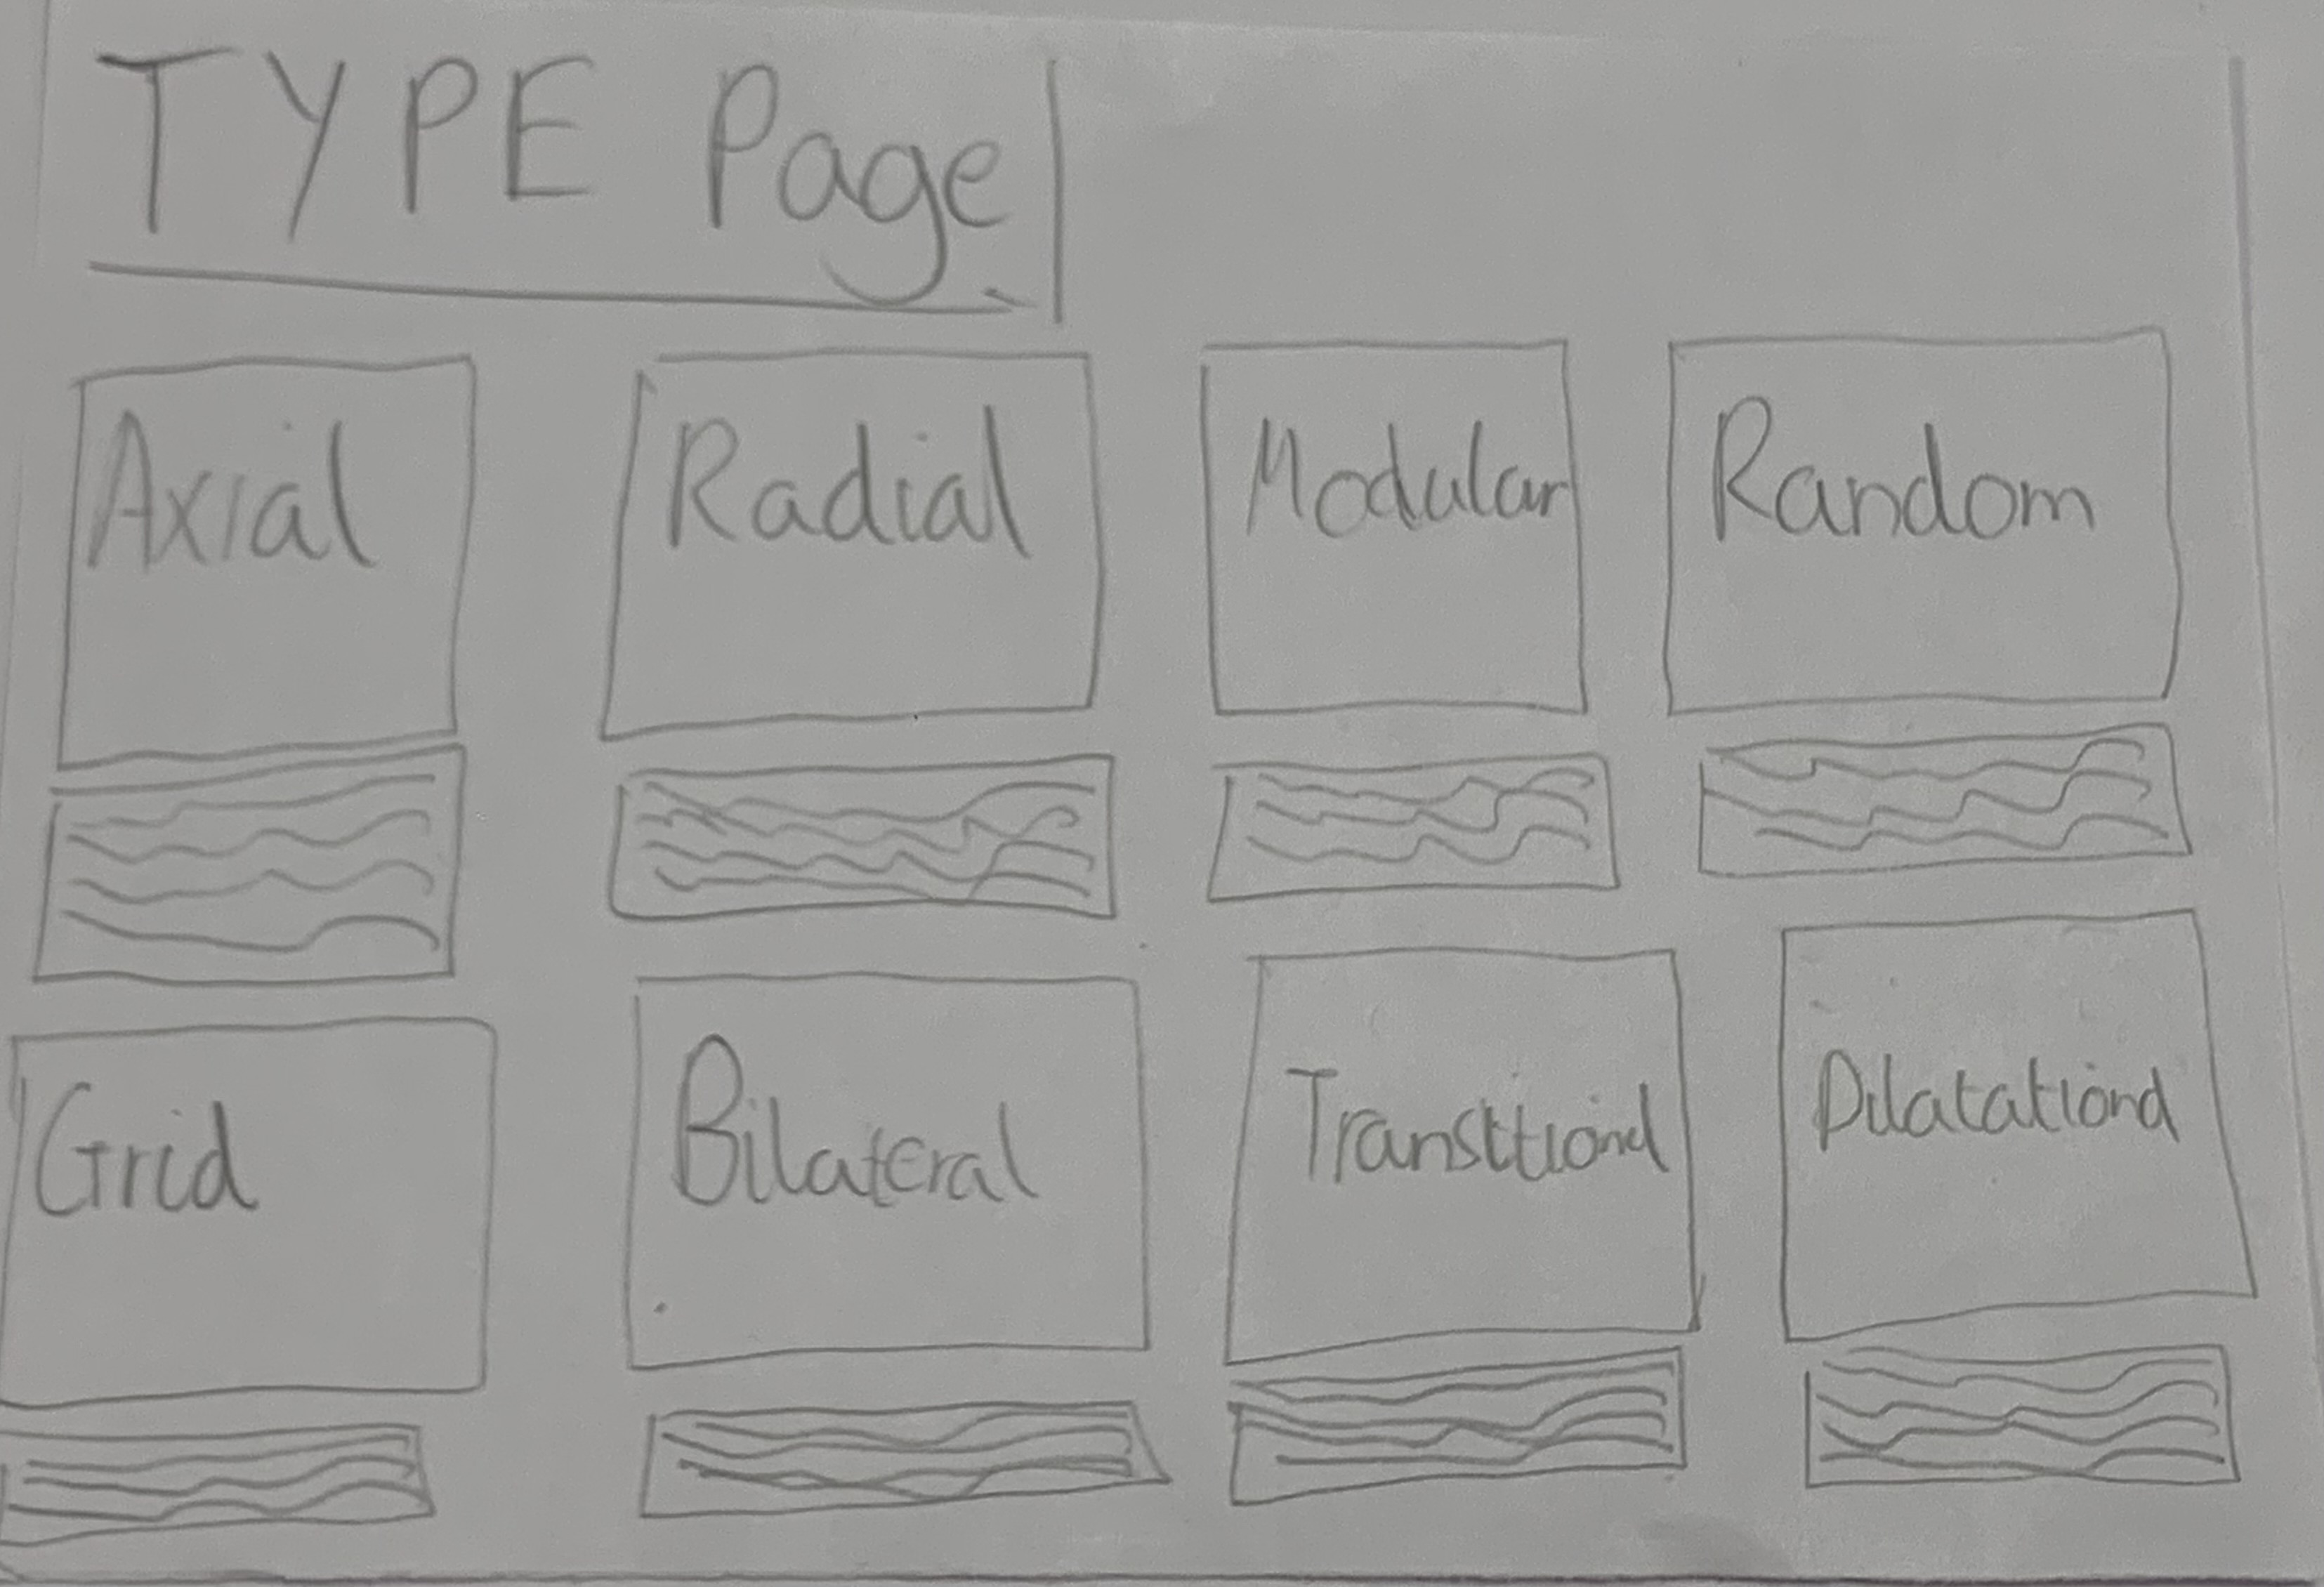 TYPE Page
Axial
Radial
Modular
Random
Grid
Bilateral
Transitional
Dilatational